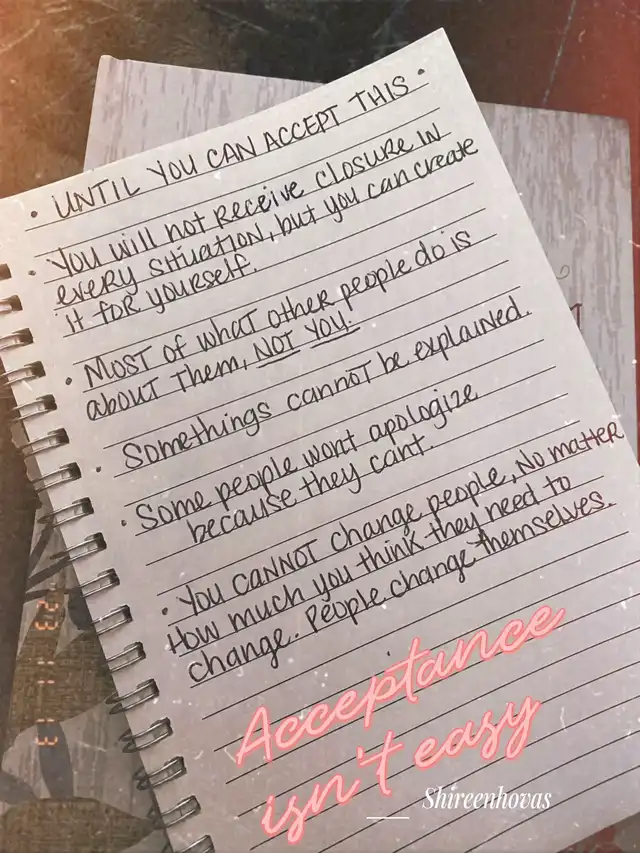 • UNTIL YOU CAN ACCEPT THIS •
• YOU will not RECEIVE CLOSURE IN
every situation, but you can create
it for yourself.
• MOST of what other people do is
about them, NOT YOU!
• Somethings cannot be explained.
• Some people wont apologize
because they cant.
• YOU CANNOT change people, NO matter
How much you think they need to
change. People change themselves.
Acceptance
isn't easy
Shireenhovas